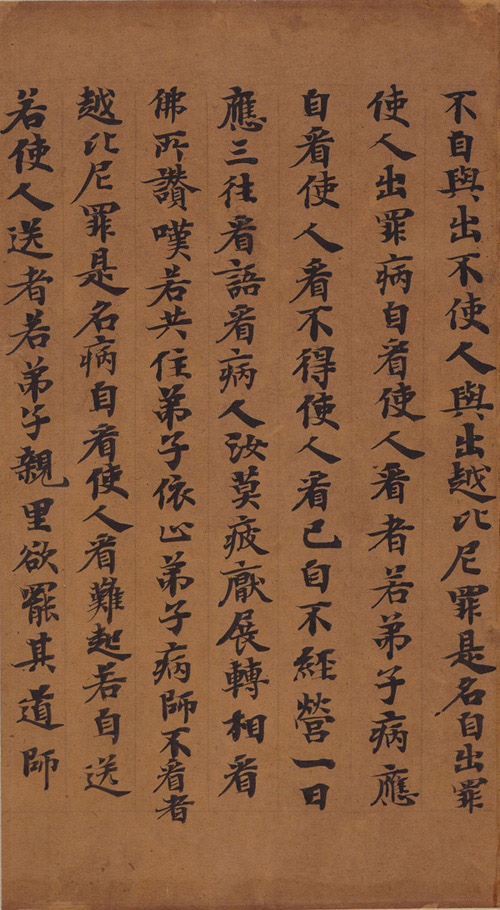 不自與出不使人與出越比尼罪是名自出罪
使人出罪病自看使人看者若弟子病應
自看使人看不得使人看已自不經營一日
應三往看語看病人汝莫疲厭展轉相看
佛所讚嘆若共住弟子依止弟子病師不看者
越比尼罪是名病自看使人看難起若自送
若使人送者若弟子親里欲罷其道師